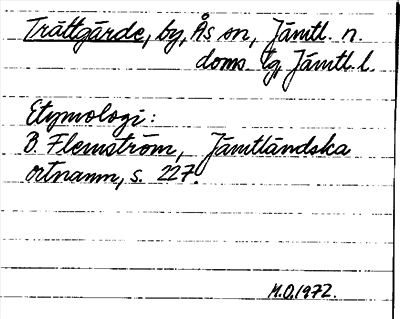 Trättgärde, by, Ås sn, Jämtl. n.
doms. tg, Jämtl. l.
Etymologi:
B. Flemström, Jämtländska
ortnamn, s. 227.
M.O. 1972.